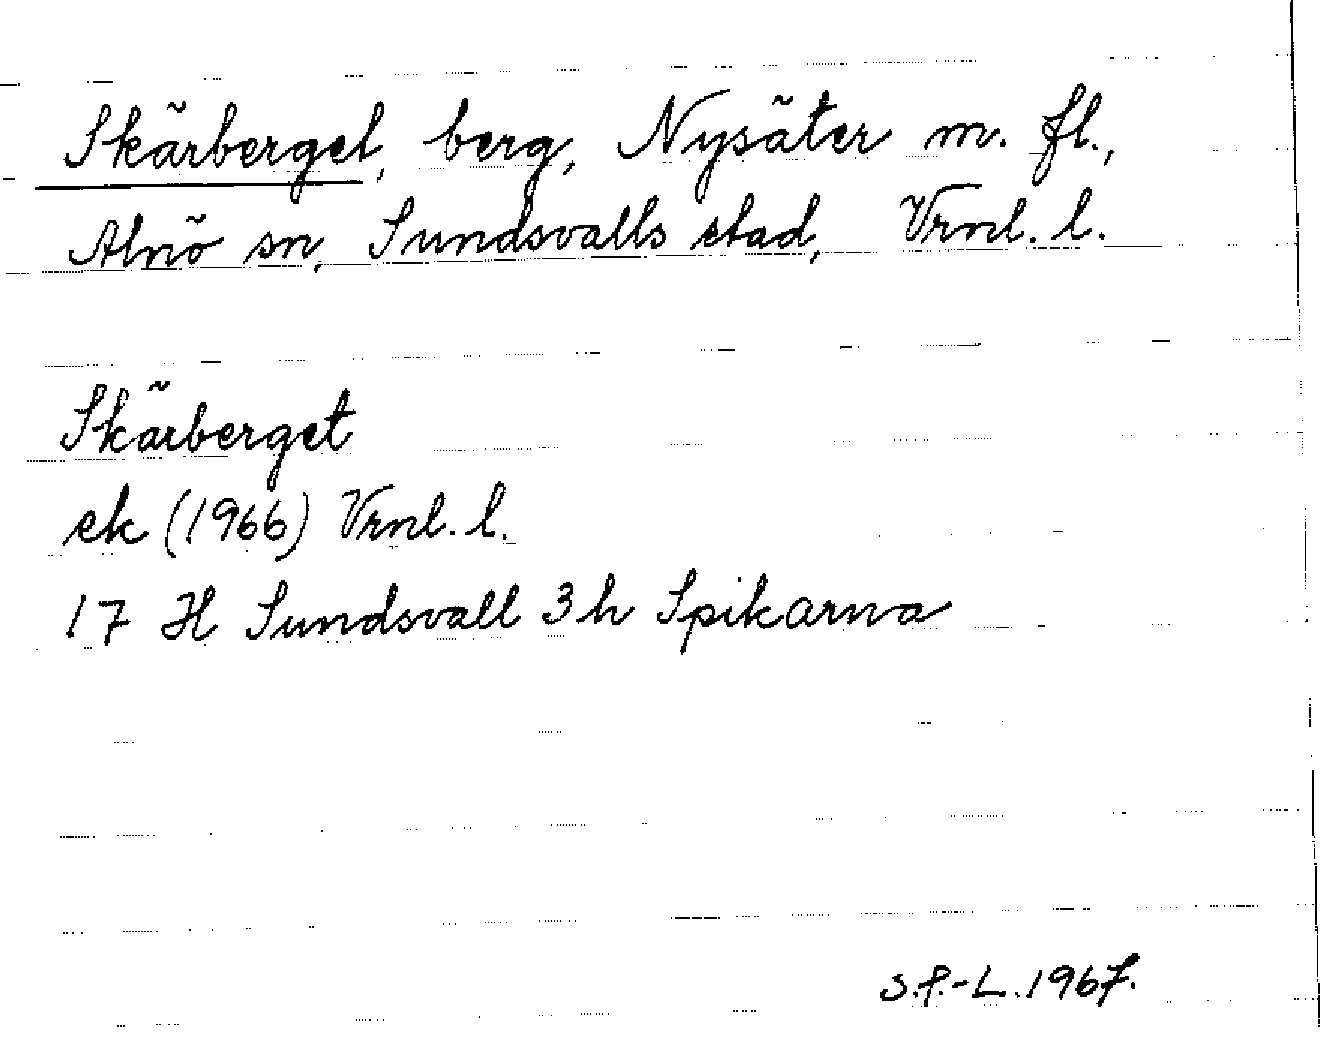 Skärberget, berg, Nysäter m. fl.,
Alnö sn, Sundsvalls stad, Vrnl. l.
Skärberget
ek (1966) Vrnl. l.
17 H Sundsvall 3 h Spikarna
S.P.-L. 1967.